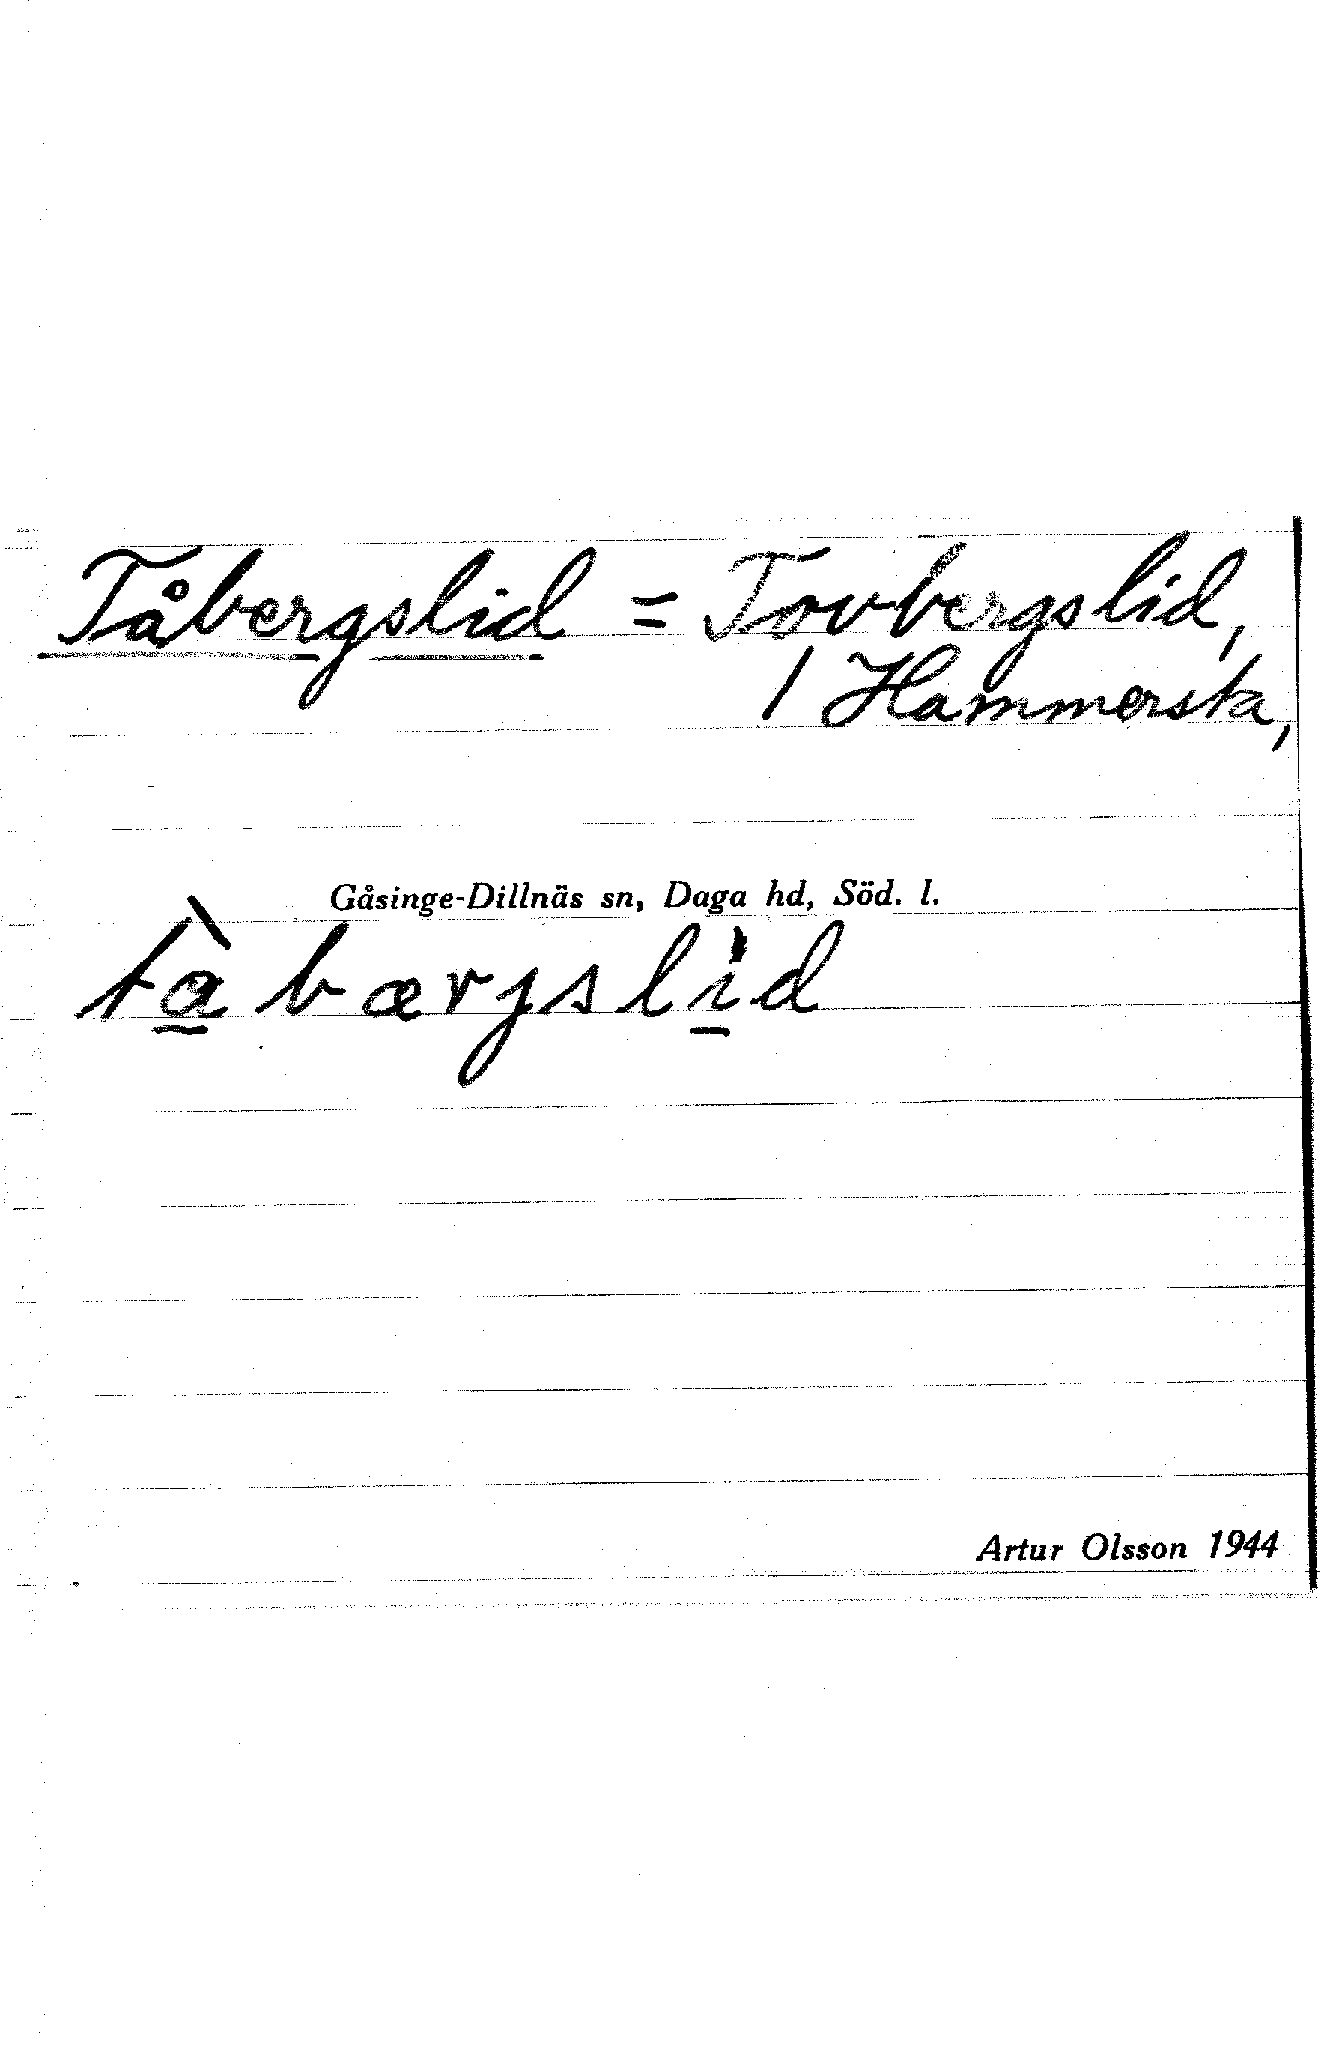 Tåbergslid = Tovbergslid,
/ Hammersta,
Gåsinge-Dillnäs sn, Daga hd, Söd. l.
tà̱ bærjslì̱d
Artur Olsson 1944